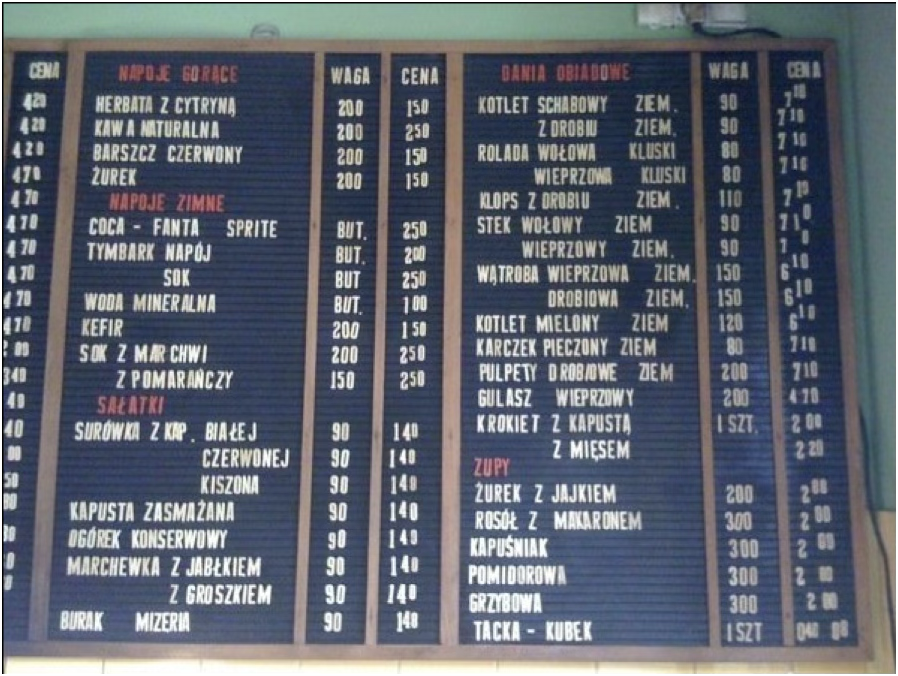 CENA
4 20
4 20
4 20
4 70
4 70
4 70
4 70
4 70
4 70
4 70
3 40
NAPOJE GORĄCE WAGA CENA
HERBATA Z CYTRYNĄ 200 1 50
KAWA NATURALNA 200 2 50
BARSZCZ CZERWONY 200 1 50
ŻUREK 200 1 50
NAPOJE ZIMNE
COCA - FANTA SPRITE BUT. 2 50
TYMBARK NAPÓJ BUT. 2 00
SOK BUT 2 50
WODA MINERALNA BUT. 1 00
KEFIR 200 1 50
SOK Z MARCHWI 200 2 50
Z POMARAŃCZY 150 2 50
SAŁATKI
SURÓWKA Z KAP. BIAŁEJ 90 1 40
CZERWONEJ 90 1 40
KISZONA 90 1 40
KAPUSTA ZASMAŻANA 90 1 40
OGÓREK KONSERWOWY 90 1 40
MARCHEWKA Z JABŁKIEM 90 1 40
Z GROSZKIEM 90 1 40
BURAK MIZERIA 90 1 40
DANIA OBIADOWE WAGA CENA
KOTLET SCHABOWY ZIEM. 90 7 10
Z DROBIU ZIEM. 90 7 10
ROLADA WOŁOWA KLUSKI 80 7 10
WIEPRZOWA KLUSKI 80 7 10
KLOPS Z DROBIU ZIEM. 110 7 10
STEK WOŁOWY ZIEM 90 7 10
WIEPRZOWY ZIEM. 90 7
WĄTROBA WIEPRZOWA ZIEM. 150 6 10
DROBIOWA ZIEM. 150 6 10
KOTLET MIELONY ZIEM 120 6 10
KARCZEK PIECZONY ZIEM 80 7 10
PULPETY DROBIOWE ZIEM 200 7 10
GULASZ WIEPRZOWY 200 4 70
KROKIET Z KAPUSTĄ 1 SZT. 2 00
Z MIĘSEM 2 20
ZUPY
ŻUREK Z JAJKIEM 200 2 00
ROSÓŁ Z MAKARONEM 300 2 00
KAPUŚNIAK 300 2 00
POMIDOROWA 300 2 00
GRZYBOWA 300 2 00
TACKA - KUBEK 1 SZT 0 40